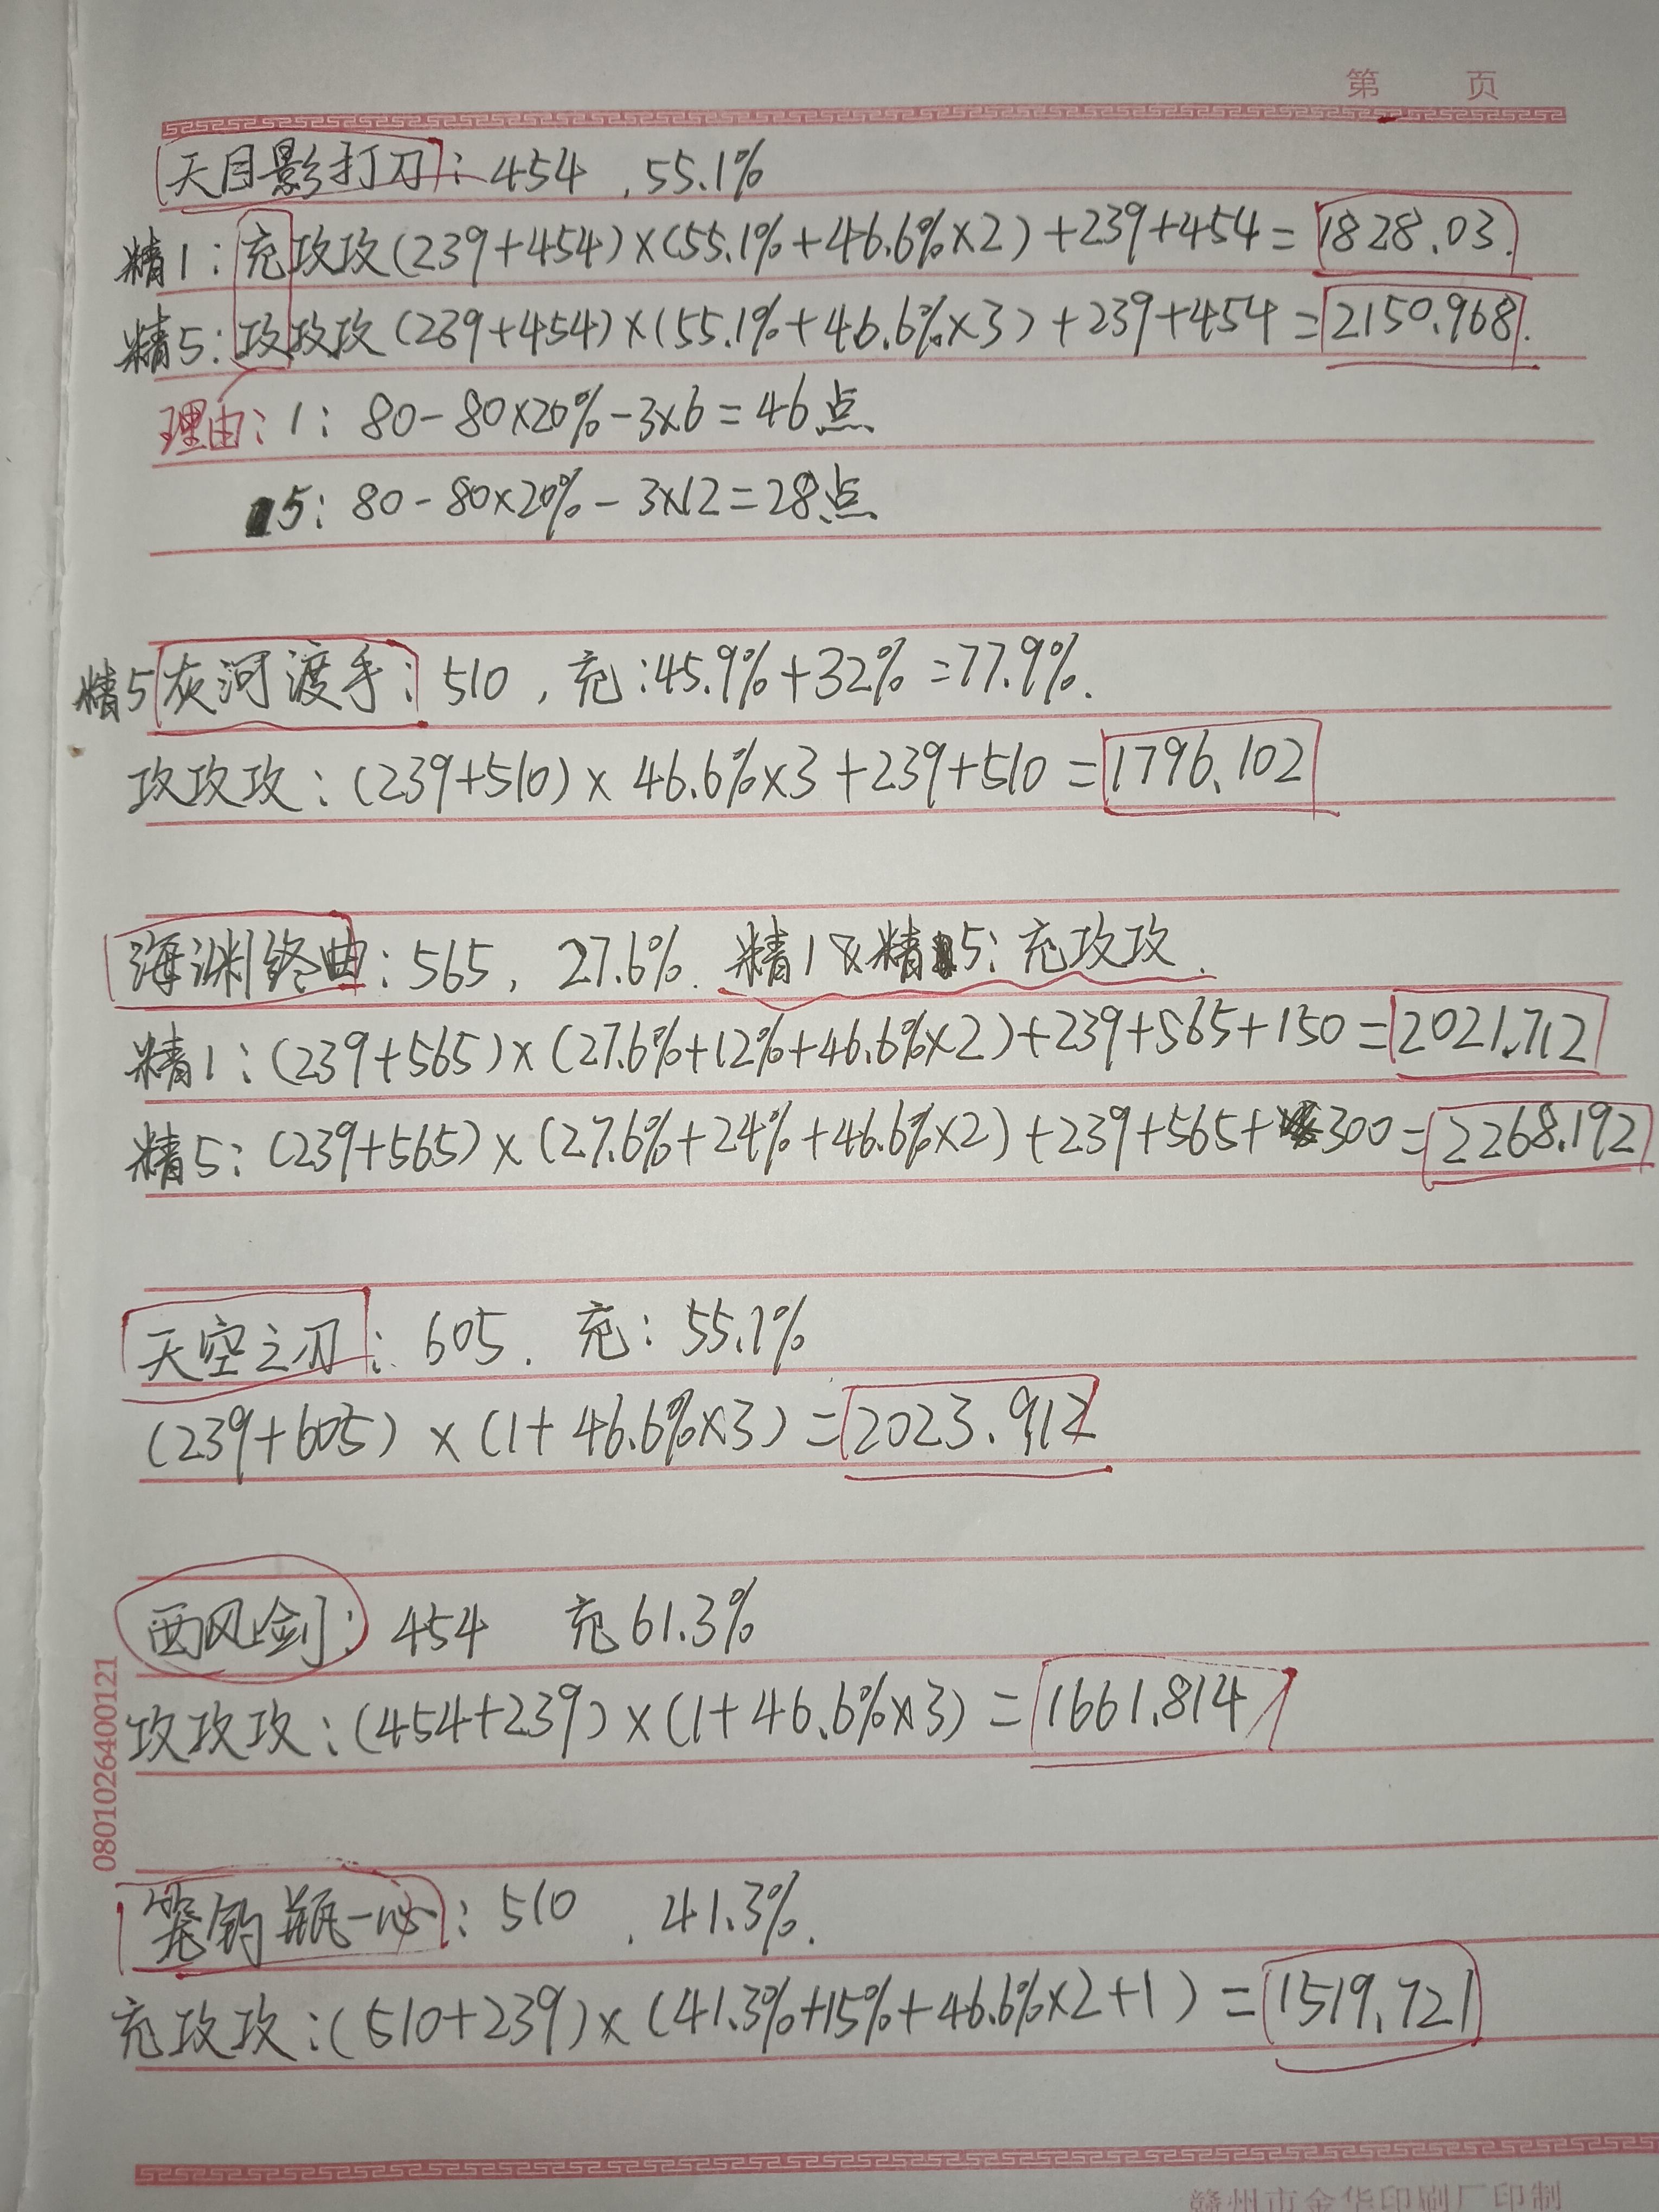 第 页
天目影打刀: 454 , 55.1%
精1: 充攻攻(239+454)×(55.1%+46.6%×2)+239+454=1828.03.
精5: 攻攻攻(239+454)×(55.1%+46.6%×3)+239+454=2150.968.
理由: 1: 80-80×20%-3×6=46点
5: 80-80×20%-3×12=28点
精5灰河渡手: 510 , 充:45.9%+32%=77.9%.
攻攻攻: (239+510)×46.6%×3+239+510=1796.102
海渊终曲: 565, 27.6%. 精1&精5: 充攻攻.
精1: (239+565)×(27.6%+12%+46.6%×2)+239+565+150=2021.712
精5: (239+565)×(27.6%+24%+46.6%×2)+239+565+300=2268.192
天空之刃: 605. 充: 55.1%
(239+605)×(1+46.6%×3)=2023.912
西风剑: 454 充61.3%
攻攻攻: (454+239)×(1+46.6%×3)=1661.814
笼钓瓶一心: 510 , 41.3%.
充攻攻: (510+239)×(41.3%+15%+46.6%×2+1)=1519.721
0801026400121
赣州市金华印刷厂印制